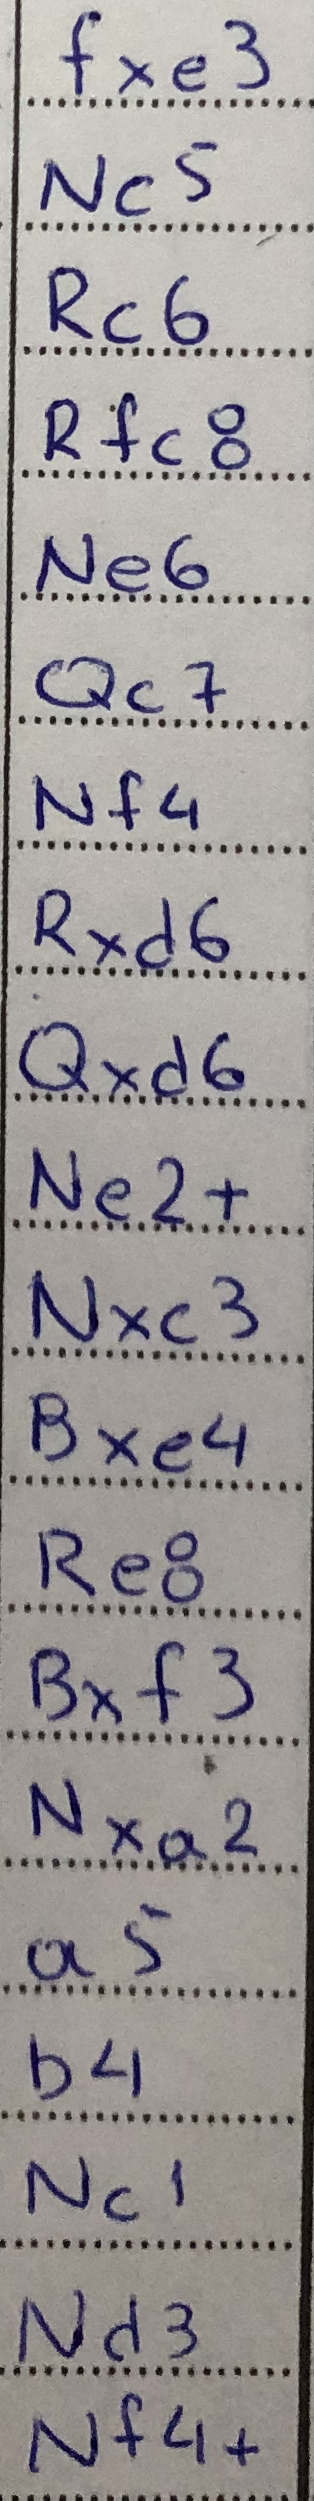 fxe3
Nc5
Rc6
Rfc8
Ne6
Qc7
Nf4
Rxd6
Qxd6
Ne2+
Nxc3
Bxe4
Re8
Bxf3
Nxa2
a5
b4
Nc1
Nd3
Nf4+